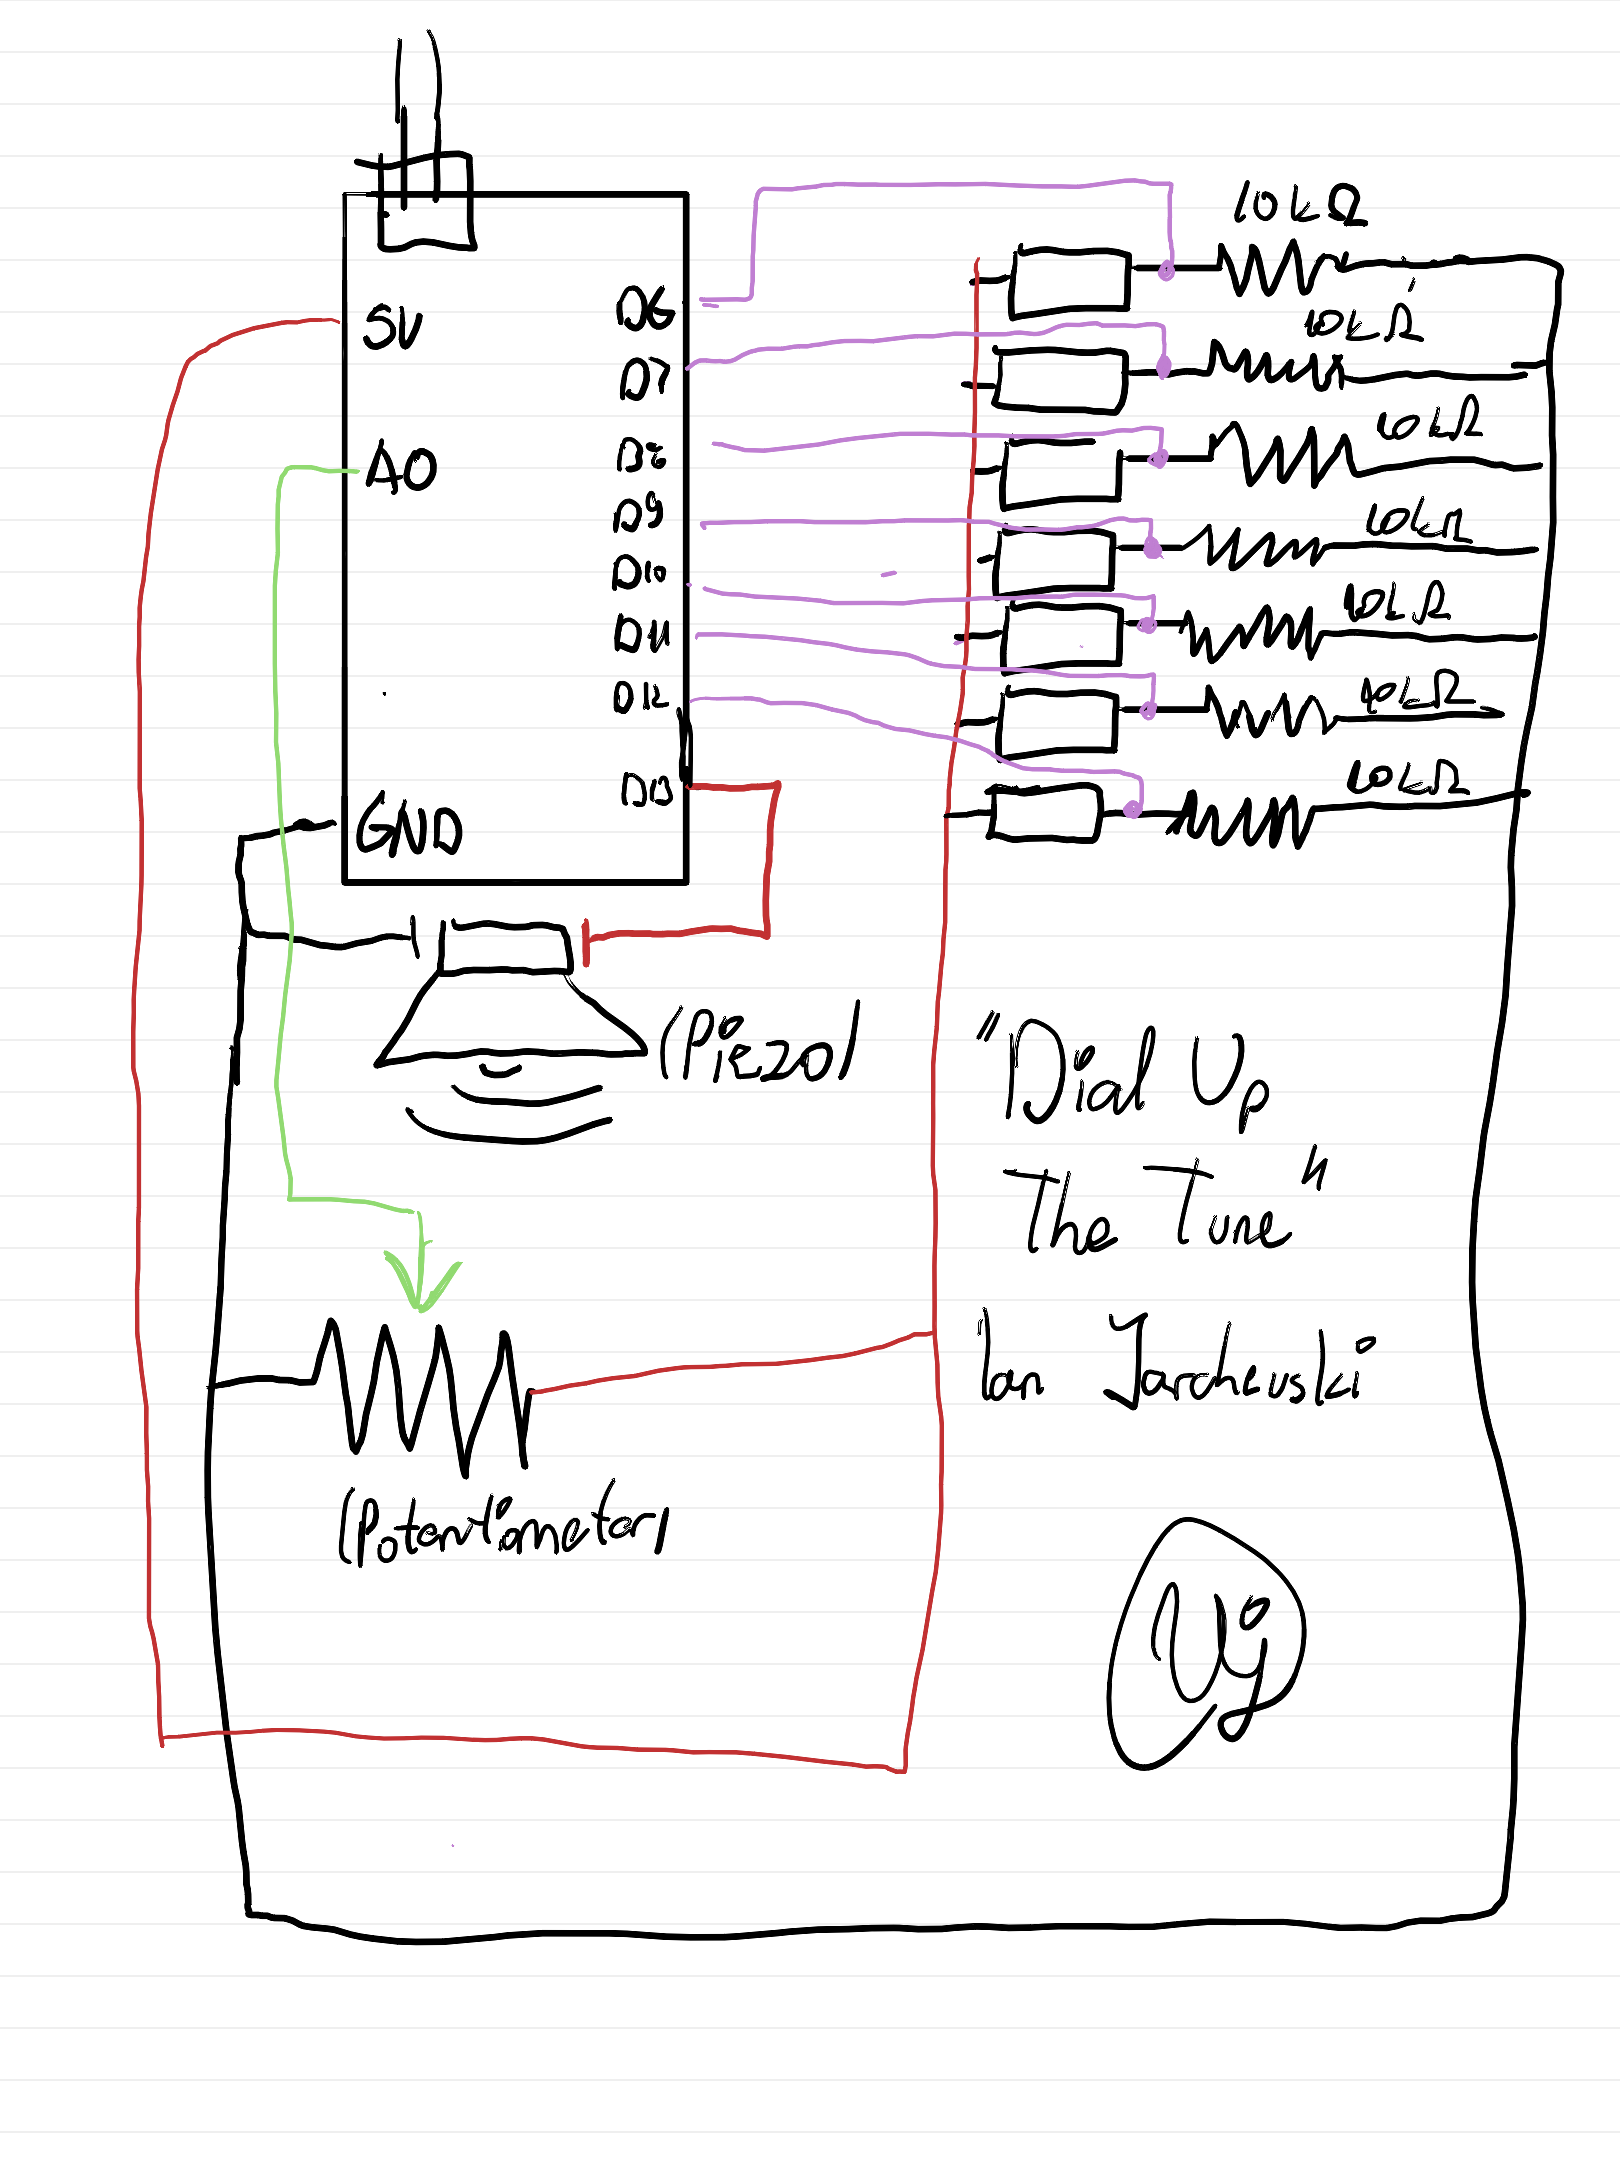 10kΩ
5V
D6
10kΩ
D7
A0
D8
10kΩ
D9
10kΩ
D10
10kΩ
D11
D12
10kΩ
D13
10kΩ
GND
(Piezo)
"Dial Up
The Tune"
Ian
(Potentiometer)